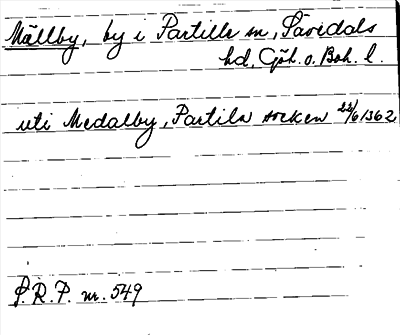 Mällby, by i Partille sn, Sävedals
hd, Göt. o. Boh. l.
uti Medalby, Partila socken 22/6 1362
S.R.P. nr. 549